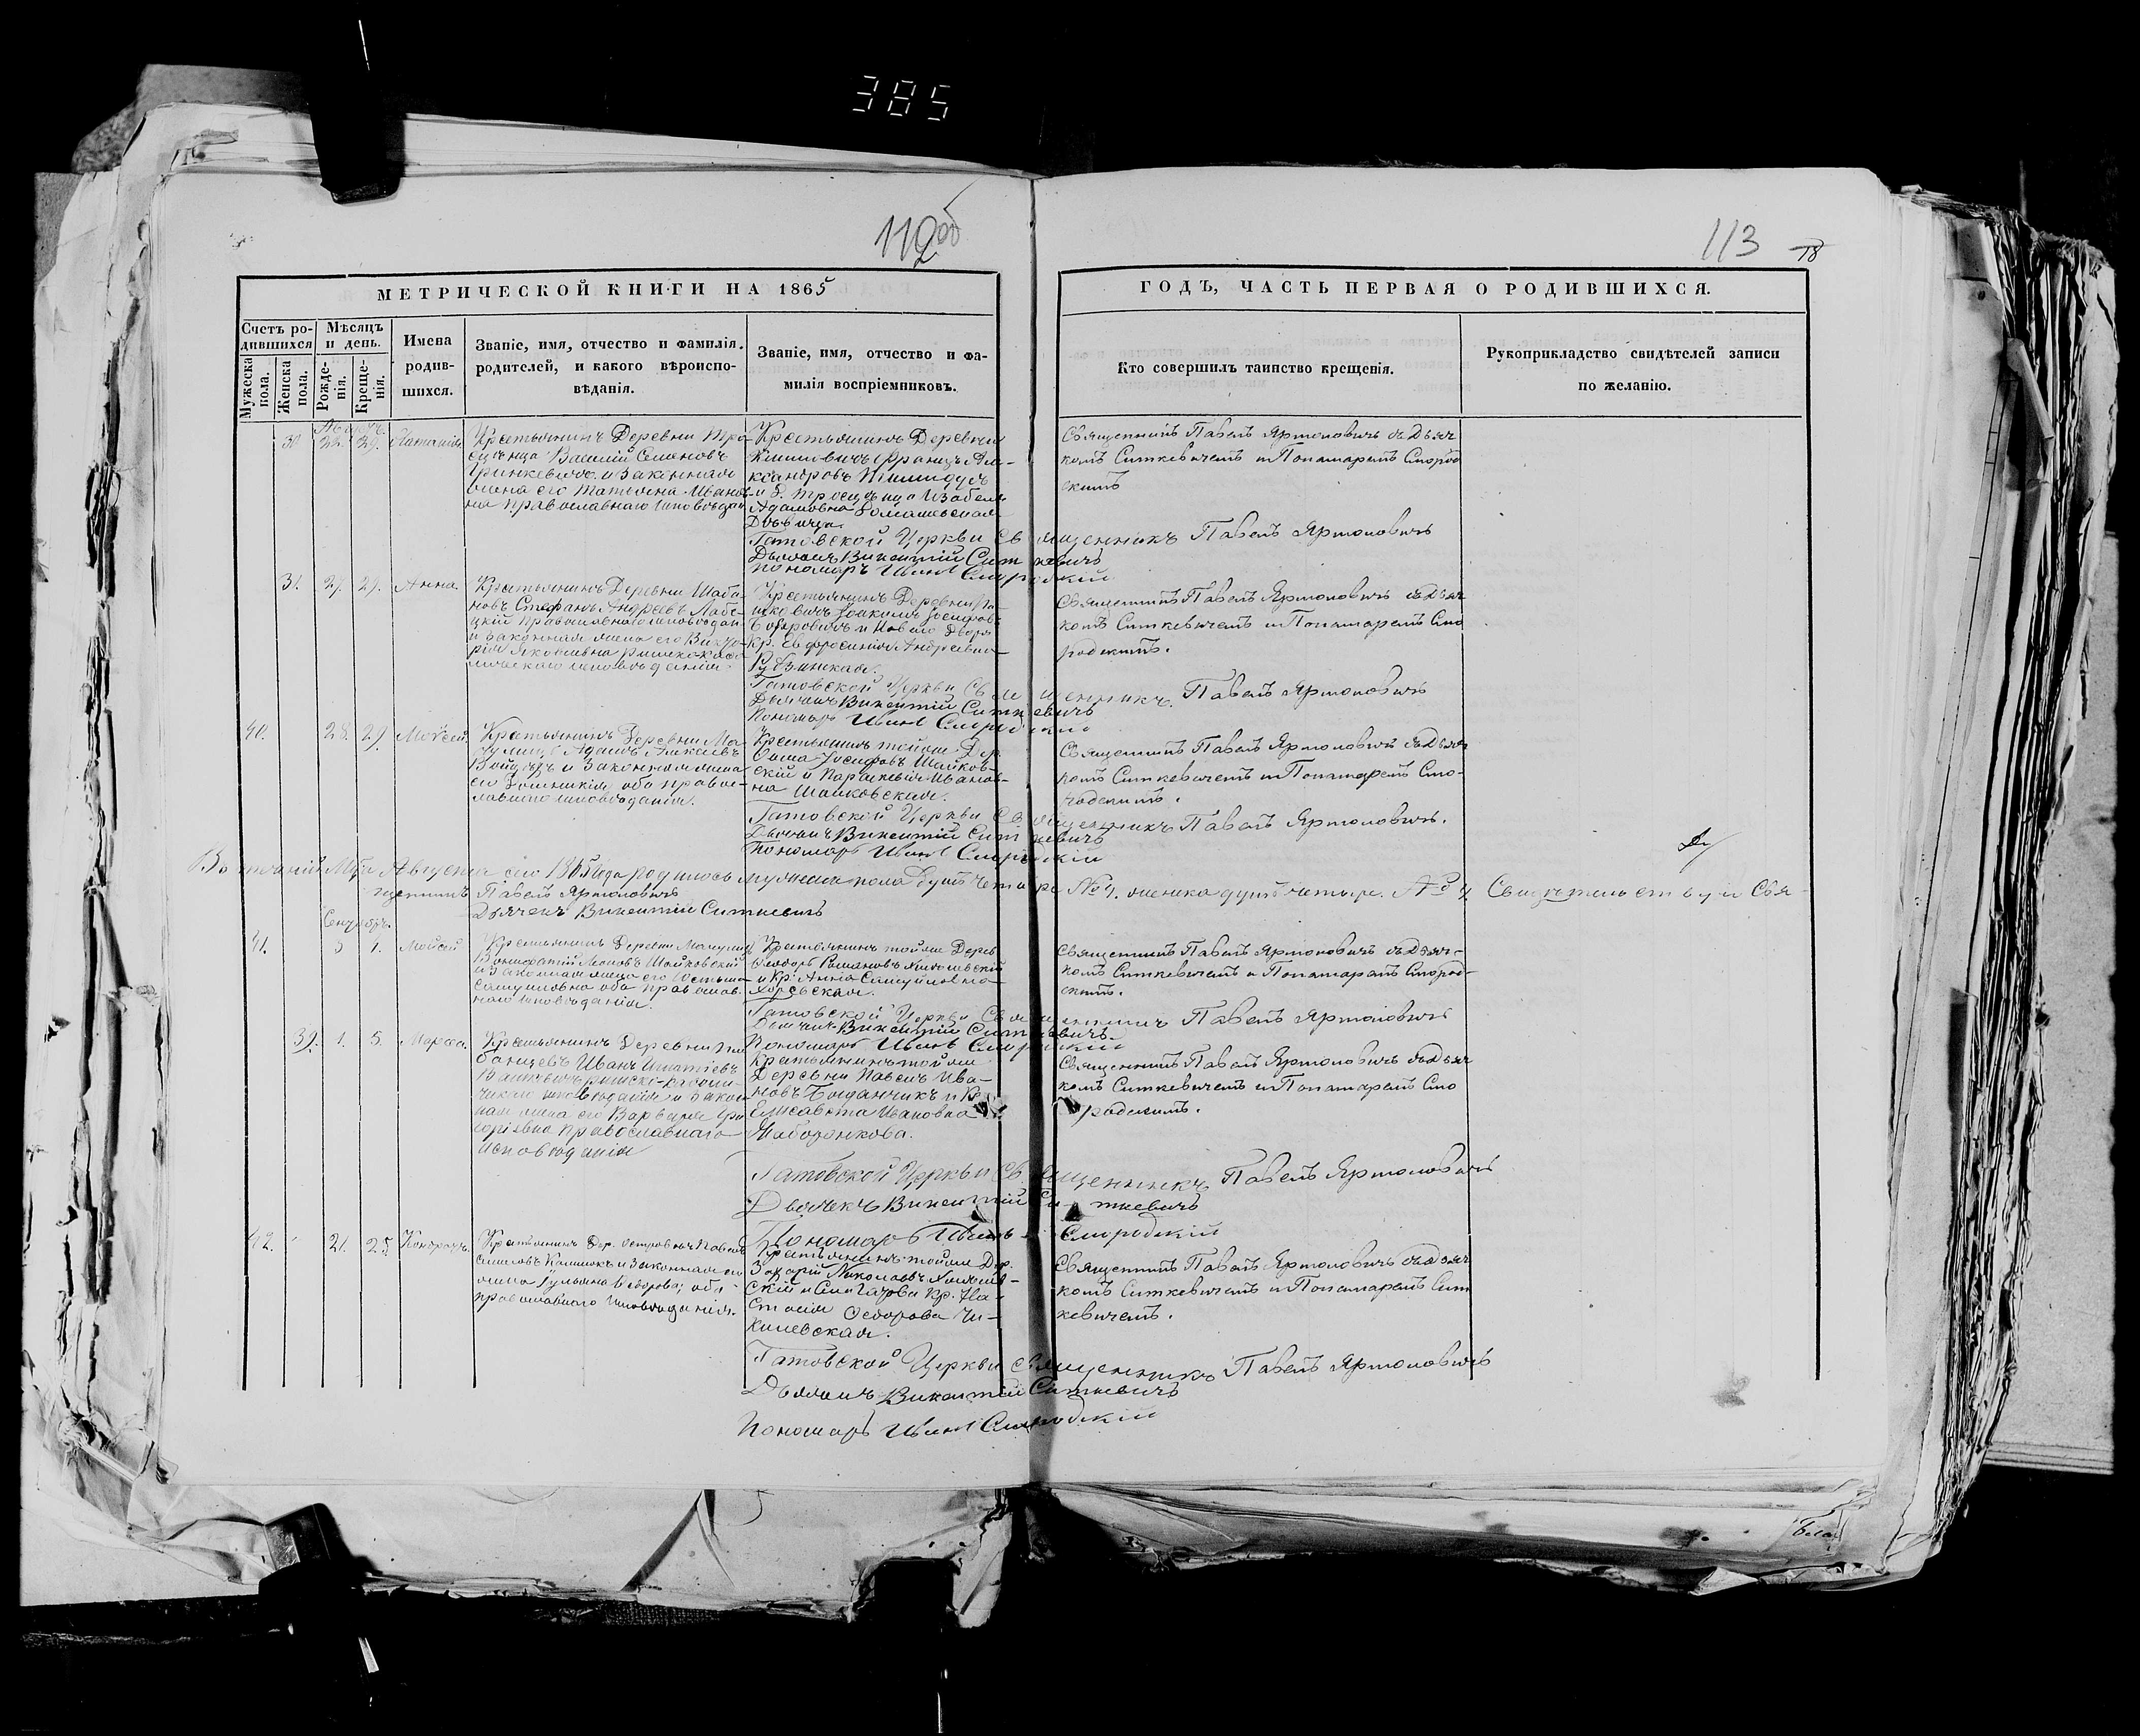 385
112об
113
78
МЕТРИЧЕСКОЙ КНИГИ НА 1865
ГОДЪ, ЧАСТЬ ПЕРВАЯ О РОДИВШИХСЯ.
Счетъ родившихся
Мужеска пола.
Женска пола.
Мѣсяцъ и день.
Рожденія.
Крещенія.
Имена родившихся.
Званіе, имя, отчество и фамилія родителей, и какого вѣроисповѣданія.
Званіе, имя, отчество и фамилія воспріемниковъ.
Кто совершилъ таинство крещенія.
Рукоприкладство свидѣтелей записи по желанію.
30 22. 29.
Крестьянинъ Деревни
Василій Семеновъ
Гринкевичъ и законная
жена его Татьяна Иванов-
на православнаго исповѣдан
Крестьянинъ Деревни
Францъ Але-
ксандровъ
Изабела
Адамовна Ромашевская
Дѣвица
Священникъ Павелъ Ярмоловичъ съ Дьяч
комъ Ситкевичемъ и Понамаремъ Смород
скимъ
Гатовской Церкви Священникъ Павелъ Ярмоловичъ
Дьячекъ Викентій Ситкевичъ
Пономарь Иванъ Смородскій
31. 27. 29. Анна.
Крестьянинъ Деревни Шаба-
новъ Стефанъ Андреевъ Лабе-
цкій православнаго исповѣдан
и законная жена его Викто-
рія Яковлевна римскокато-
лическаго исповѣданія.
Крестьянинъ Деревни
Іоакимъ Іосифовъ
и Новаго Двора
Кр. Евфросинія Андреевна
Священникъ Павелъ Ярмоловичъ съ Дьяч
комъ Ситкевичемъ и Понамаремъ Смо
родскимъ.
Гатовской Церкви Священникъ Павелъ Ярмоловичъ
Дьячекъ Викентій Ситкевичъ
Пономарь Иванъ Смородскій
40. 28. 29. Моѵсей.
Крестьянинъ Деревни Ма-
чулищъ Адамъ
и законная жена
его Домникія, оба правос-
лавнаго исповѣданія.
Крестьянинъ тойже Дер.
Ѳома Іосифовъ Шайков-
скій и Параскевія Иванов-
на Шайковская.
Священникъ Павелъ Ярмоловичъ съ Дьяч
комъ Ситкевичемъ и Понамаремъ Смо-
родскимъ.
Гатовской Церкви Священникъ Павелъ Ярмоловичъ.
Дьячекъ Викентій Ситкевичъ
Пономарь Иванъ Смородскій
Въ теченій Мца Августа сего 1865 года родилось мужеска пола душъ четыре № 4. женска душъ четыре. № 4 Свидѣтельствую Свя-
щенникъ Павелъ Ярмоловичъ
Дьячекъ Викентій Ситкевичъ
Сентябрь.
41. 1. Моѵсей
Крестьянинъ Деревни Мачулищъ
Бонифатій Шайковскій
и законная жена его Юстина
Самуиловна оба православ-
наго исповѣданія.
Крестьянинъ тойже Дерев
Ѳеодоръ
и Кр: Анна Самуиловна
Священникъ Павелъ Ярмоловичъ съ Дьяч-
комъ Ситкевичемъ и Понамаремъ Смород-
скимъ.
Гатовской Церкви Священникъ Павелъ Ярмоловичъ
Дьячекъ Викентій Ситкевичъ
Пономарь Иванъ Смородскій
1. 5. Марѳа.
Крестьянинъ Деревни
Иванъ Игнатіевъ
римско-католи-
ческаго исповѣданія и закон-
ная жена его Варвара Гри
горіевна православнаго
исповѣданія
Крестьянинъ тойже
Деревни Павелъ Ива-
новъ Богданчикъ и Кр
Елисавета Ивановна
Священникъ Павелъ Ярмоловичъ съ Дьяч
комъ Ситкевичемъ и Понамаремъ Смо
родскимъ.
Гатовской Церкви Священникъ Павелъ Ярмоловичъ
Дьячекъ Викентій Ситкевичъ
Пономарь Иванъ Смородскій
42. 21. 25 Кондратъ.
Крестьянинъ Дер. Павелъ
и законная его
жена Ѳеодорова; оба
православнаго исповѣданія.
Крестьянинъ тойже Дер.
Захарій Николаевъ
Кр. На-
стасія Ѳеодорова
Священникъ Павелъ Ярмоловичъ съ Дьяч
комъ Ситкевичемъ и Понамаремъ Сит
кевичемъ.
Гатовской Церкви Священникъ Павелъ Ярмоловичъ
Дьячекъ Викентій Ситкевичъ
Пономарь Иванъ Смородскій